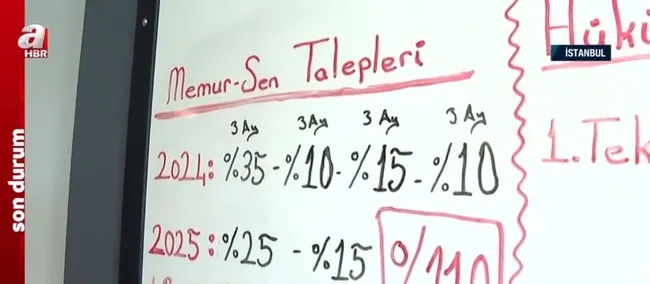 a
HBR
son durum
İSTANBUL
Memur-Sen Talepleri
3 Ay 3 Ay 3 Ay 3 Ay
2024: %35 - %10 - %15 - %10
2025: %25 - %15
1. Tek